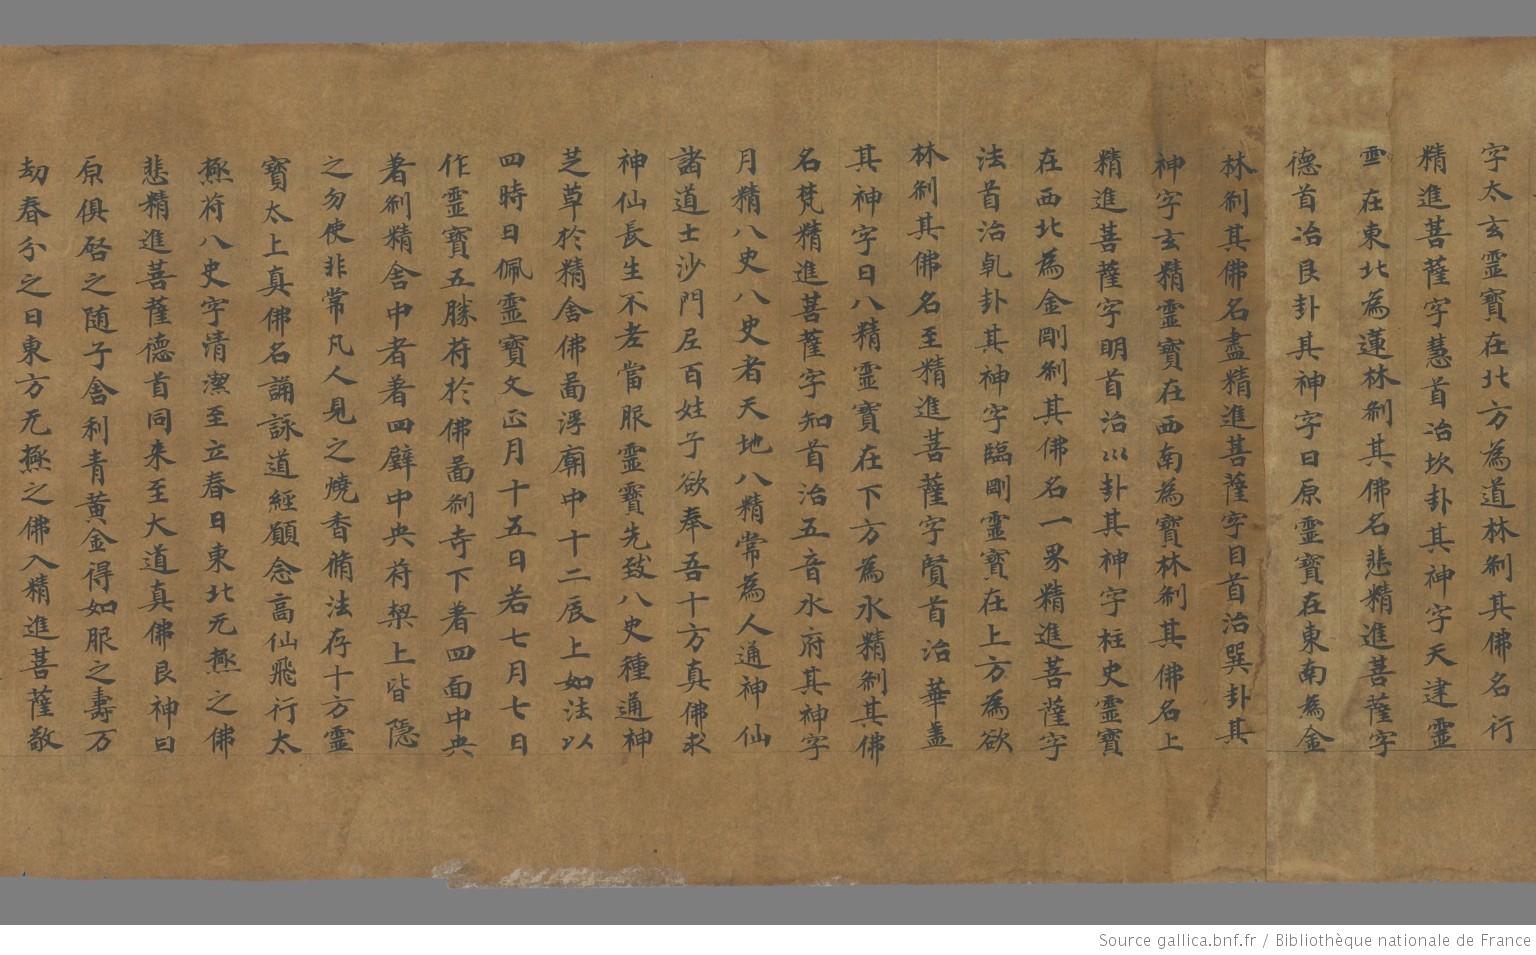 字太玄靈寶在北方為道林剎其佛名行
精進菩薩字慧首治坎卦其神字天建靈
在東北為蓮林剎其佛名悲精進菩薩字
德首治艮卦其神字曰原靈寶在東南為金
林剎其佛名盡精進菩薩字目首治巽卦其
神字玄精靈寶在西南為寶林剎其佛名上
精進菩薩字明首治卦其神字柱史靈寶
在西北為金剛剎其佛名一界精進菩薩字
法首治乹卦其神字臨剛靈寶在上方為欲
林剎其佛名至精進菩薩字賢首治華盖
其神字曰八精靈寶在下方為水精剎其佛
名梵精進菩薩字知首治五音水府其神字
月精八史八史者天地八精常為人通神仙
諸道士沙門尼百姓子欲奉吾十方真佛求
神仙長生不老當服靈寶先致八史種通神
芝草於精舍佛啚浮廟中十二辰上如法以
四時日佩靈寶文正月十五日若七月七日
作靈寶五勝符於佛啚剎寺下著四面中央
著剎精舍中者著四壁中央符架上皆隱
之勿使非常凡人見之燒香脩法存十方靈
寶太上真佛名誦詠道經願念高仙飛行太
極符八史字清潔至立春日東北无極之佛
悲精進菩薩德首同来至大道真佛艮神曰
原俱啓之随子舍利青黃金得如服之壽万
劫春分之日東方无極之佛入精進菩薩敬
Source gallica.bnf.fr / Bibliothèque nationale de France